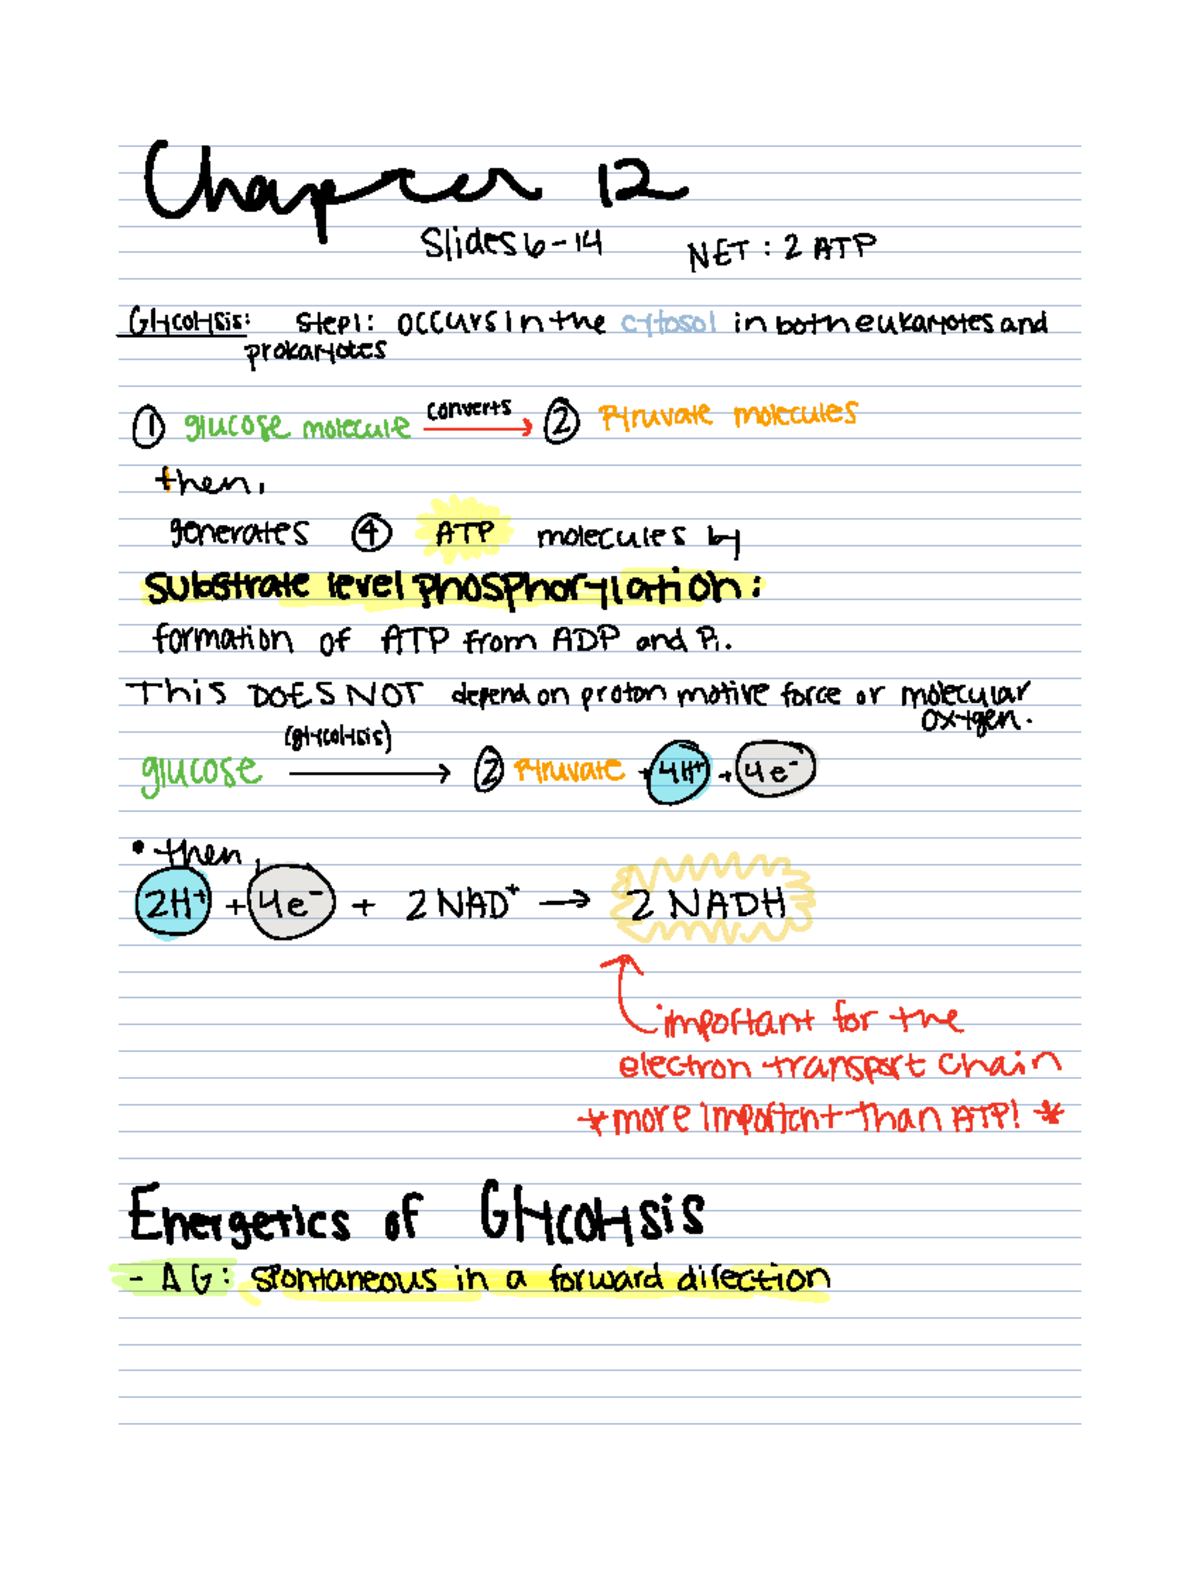 Chapter 12
Slides 6-14 NET: 2 ATP
Glycolysis: Step 1: occurs in the cytosol in both eukaryotes and
prokaryotes
① glucose molecule converts → ② Pyruvate molecules
then,
generates ④ ATP molecules by
substrate level phosphorylation:
formation of ATP from ADP and Pi.
This DOES NOT depend on proton motive force or molecular
oxygen.
(glycolysis)
glucose → ② Pyruvate + 4H⁺ + 4e⁻
• then,
2H⁺ + 4e⁻ + 2NAD⁺ → 2 NADH
important for the
electron transport chain
*more important than ATP! *
Energetics of Glycolysis
- ΔG: spontaneous in a forward direction